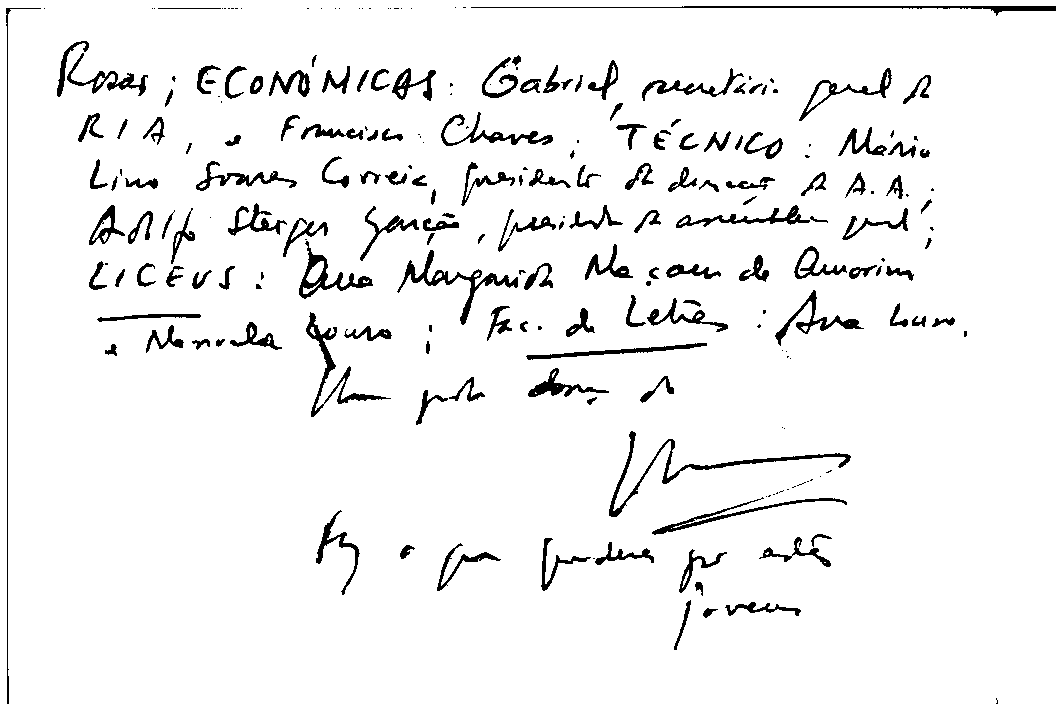 Rosas; ECONÓMICAS: Gabriel, secretário geral da
RIA, e Francisco Chaves; TÉCNICO: Mário
Lino Soares Correia, presidente da direcção da A.A.;
Adolfo Steiger Garção, presidente da assembleia geral;
LICEUS: Ana Margarida de Amorim
e Manuela Louro; Fac. de Letras: Ana Louro.
Um abraço do
o que puderes por estes
jovens